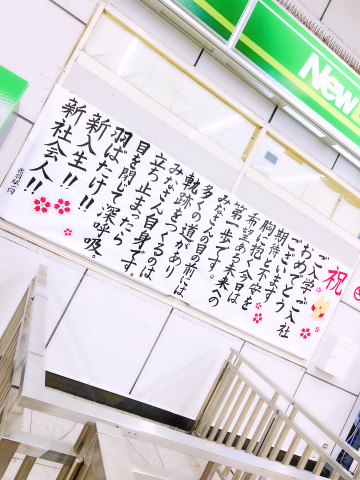 New
祝
ご入学ご入社
おめでとう
ございます
期待と不安を
胸に抱く今日は
希望ある未来への
第一歩です。
みなさんの目の前には
多くの道があり
軌跡をつくるのは
みなさん自身です。
立ち止まったら
目を閉じて深呼吸。
羽ばたけ!!
新入生!!
新社会人!!